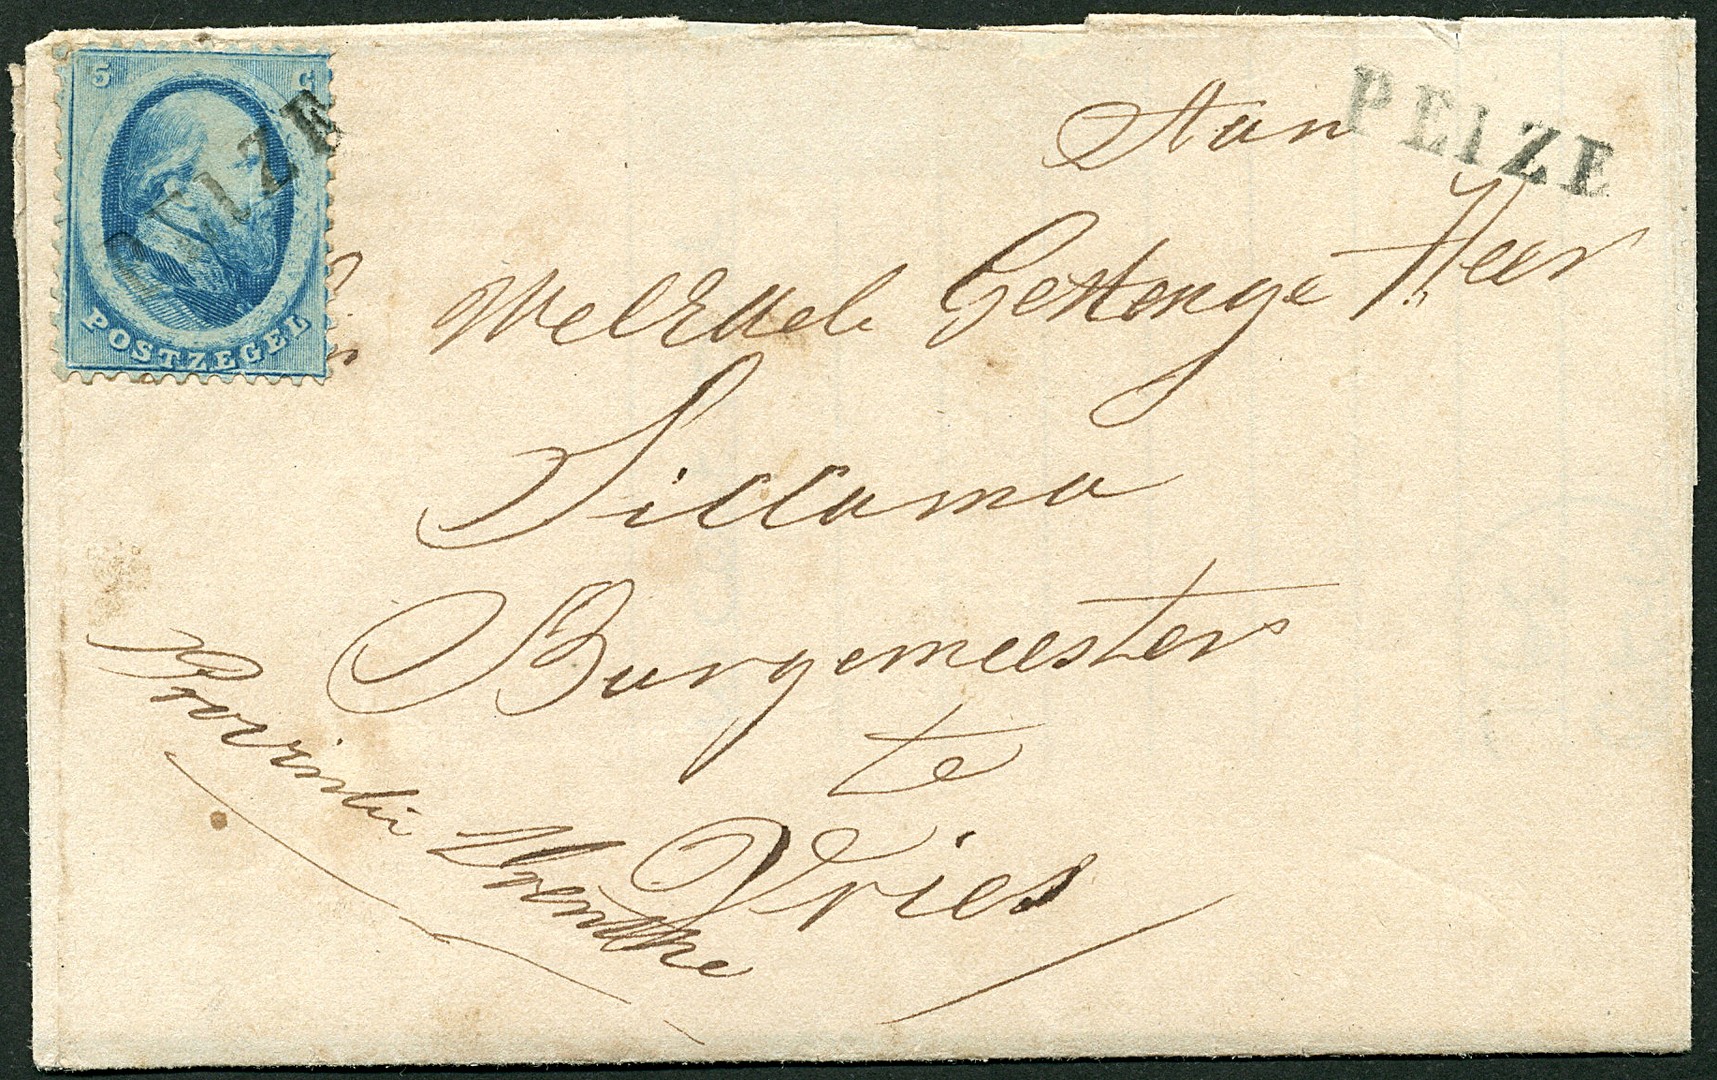 5 C
POSTZEGEL
PEIZE
PEIZE
Aan
WelEdele Gestenge Heer
Siccama
Burgemeester
te
Vries
Provintie Drenthe